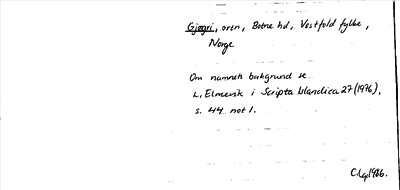 Gjøgri, ortn, Botne hd, Vestfold fylke,
Norge
Om namnets bakgrund se
L. Elmevik i Scripta Islandica 27 (1976),
s. 44 not 1.
1986.